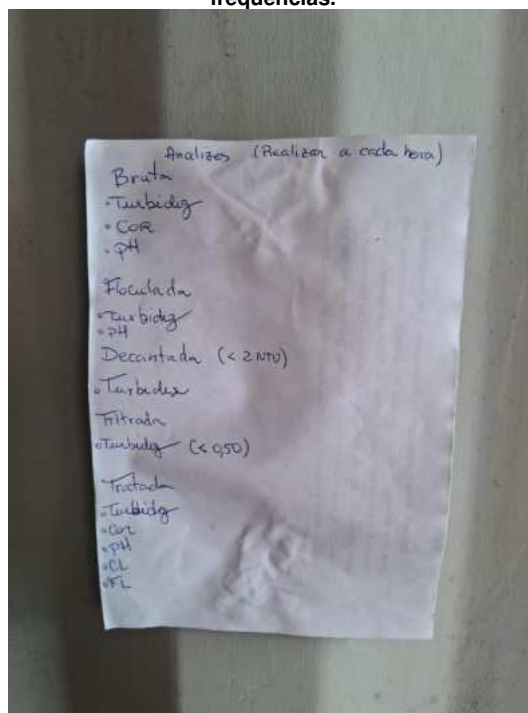 frequências.
Analizes (Realizar a cada hora)
Bruta
• Turbidez
• COR
• PH
Floculada
• Turbidez
• PH
Decantada (< 2 NTU)
• Turbidez
Filtrada
• Turbidez (< 0,50)
Tratada
• Turbidez
• Cor
• PH
• CL
• FL